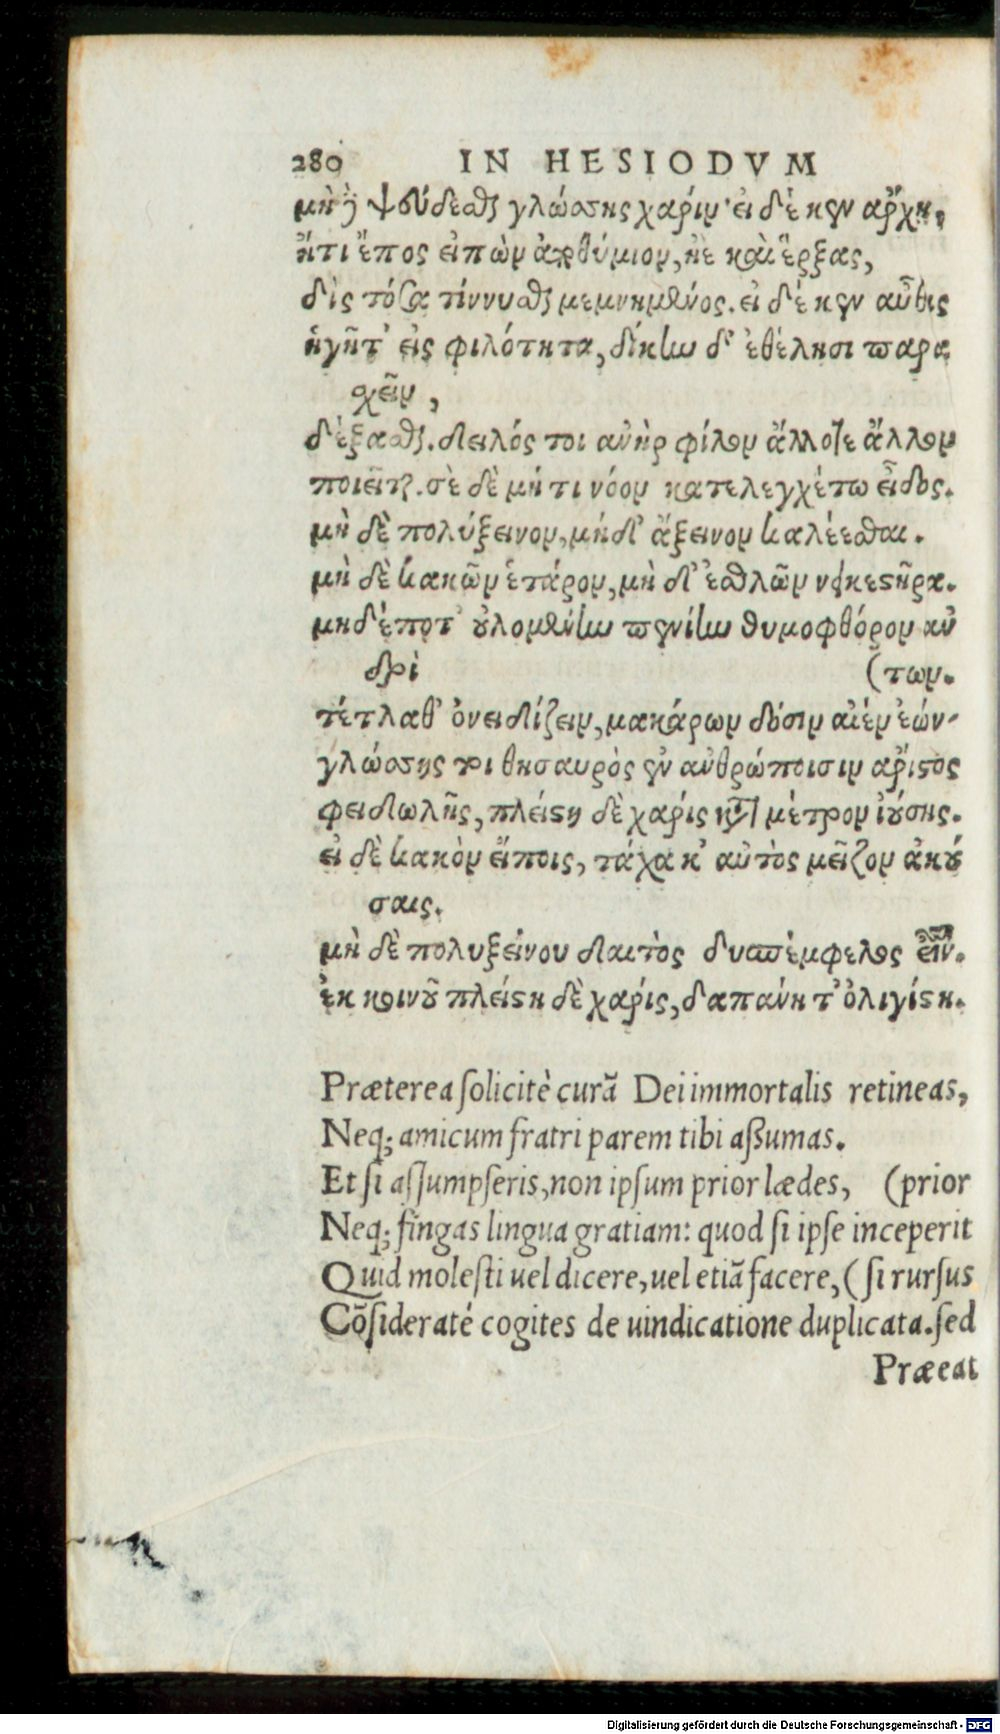 280 IN HESIODVM
μὴ δὲ ψεύδεσθαι γλώσσης χάριν· εἰ δέ κεν ἄρχῃ,
ἤ τι ἔπος εἰπὼν ἀποθύμιον, ἠὲ καὶ ἔρξας,
δὶς τόσα τίννυσθαι μεμνημένος. εἰ δέ κεν αὖθις
ἡγῆτ' εἰς φιλότητα, δίκην δ' ἐθέλησι παρα
χεῖν,
δέξασθαι. δειλός τοι ἀνὴρ φίλον ἄλλοτε ἄλλον
ποιεῖται. σὲ δὲ μή τι νόον κατελεγχέτω εἶδος.
μὴ δὲ πολύξεινον, μηδ' ἄξεινον καλέεσθαι.
μὴ δὲ κακῶν ἑτάρον, μὴ δ' ἐσθλῶν νεικεστῆρα.
μηδέποτ' οὐλομένην πενίην θυμοφθόρον ἀν
δρὶ (των.
τέτλαθ' ὀνειδίζειν, μακάρων δόσιν αἰὲν ἐόν-
γλώσσης τοι θησαυρὸς ἐν ἀνθρώποισιν ἄριστος
φειδωλῆς, πλείστη δὲ χάρις κατὰ μέτρον ἰούσης.
εἰ δὲ κακὸν εἴποις, τάχα κ' αὐτὸς μεῖζον ἀκού
σαις.
μὴ δὲ πολυξείνου δαιτὸς δυσπέμφελος εἶναι.
ἐκ κοινοῦ πλείστη δὲ χάρις, δαπάνη τ' ὀλιγίστη.
Præterea solicitè curã Dei immortalis retineas,
Neq; amicum fratri parem tibi assumas.
Et si assumpseris, non ipsum prior lædes, (prior
Neq; fingas lingua gratiam: quod si ipse inceperit
Quid molesti uel dicere, uel etiã facere, (si rursus
Cõsideraté cogites de uindicatione duplicata. sed
Præeat
Digitalisierung gefördert durch die Deutsche Forschungsgemeinschaft - DFG